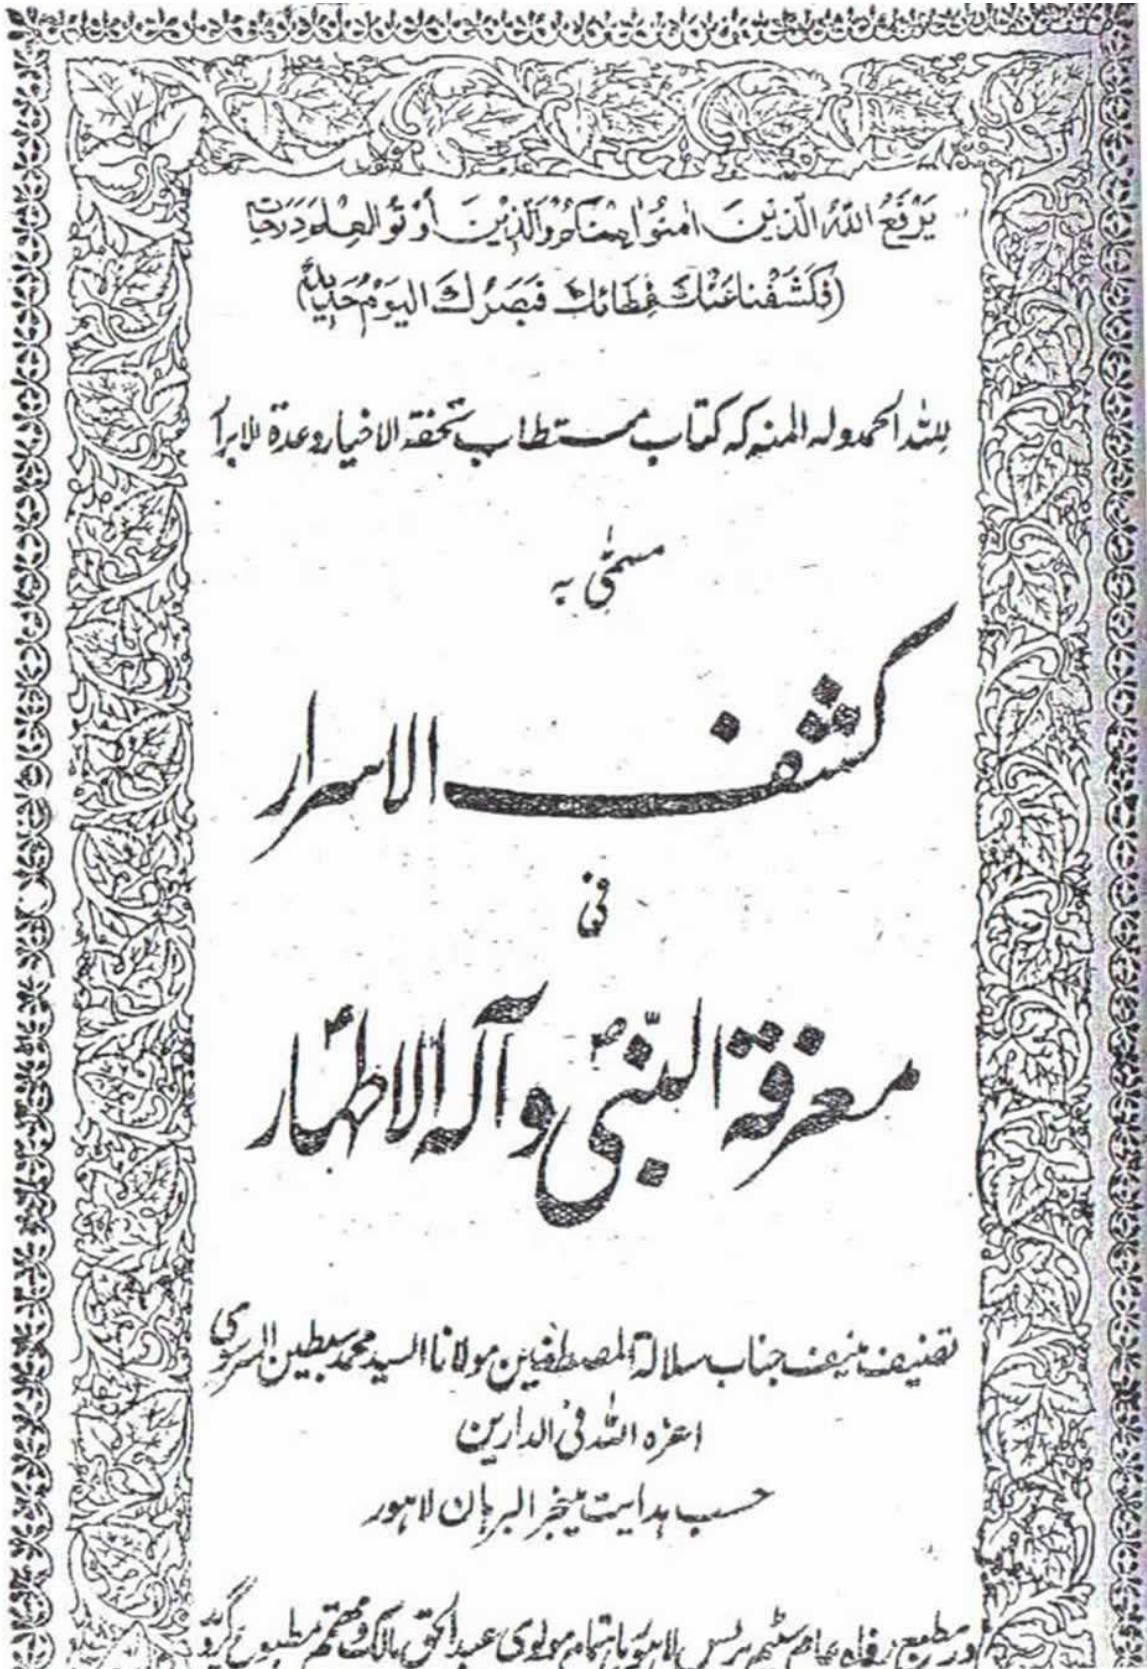 يَرْفَعُ اللّٰهُ الَّذِيْنَ اٰمَنُوْا مِنْكُمْ وَالَّذِيْنَ أُوْتُو الْعِلْمَ دَرَجَاتٍ
(فَكَشَفْنَا عَنْكَ غِطَائَكَ فَبَصَرُكَ الْيَوْمَ حَدِيْدٌ)
للہ الحمد ولہ المنہ کہ کتاب مستطاب تحفۃ الاخیار وعدۃ للابرار
مسمّٰی بہ
کشف الاسرار
فی
معرفۃ النّبیؐ وآلہ الاطہارؑ
تصنیف منیف جناب سلالۃ المصطفین مولانا السید محمد سبطین السرسوی
اعزہ اللہ فی الدارین
حسب ہدایت مینجر البرہان لاہور
در مطبع رفاہ عام سٹیم پریس لاہور باہتمام مولوی عبدالحق مالک و مہتمم مطبوع گردید